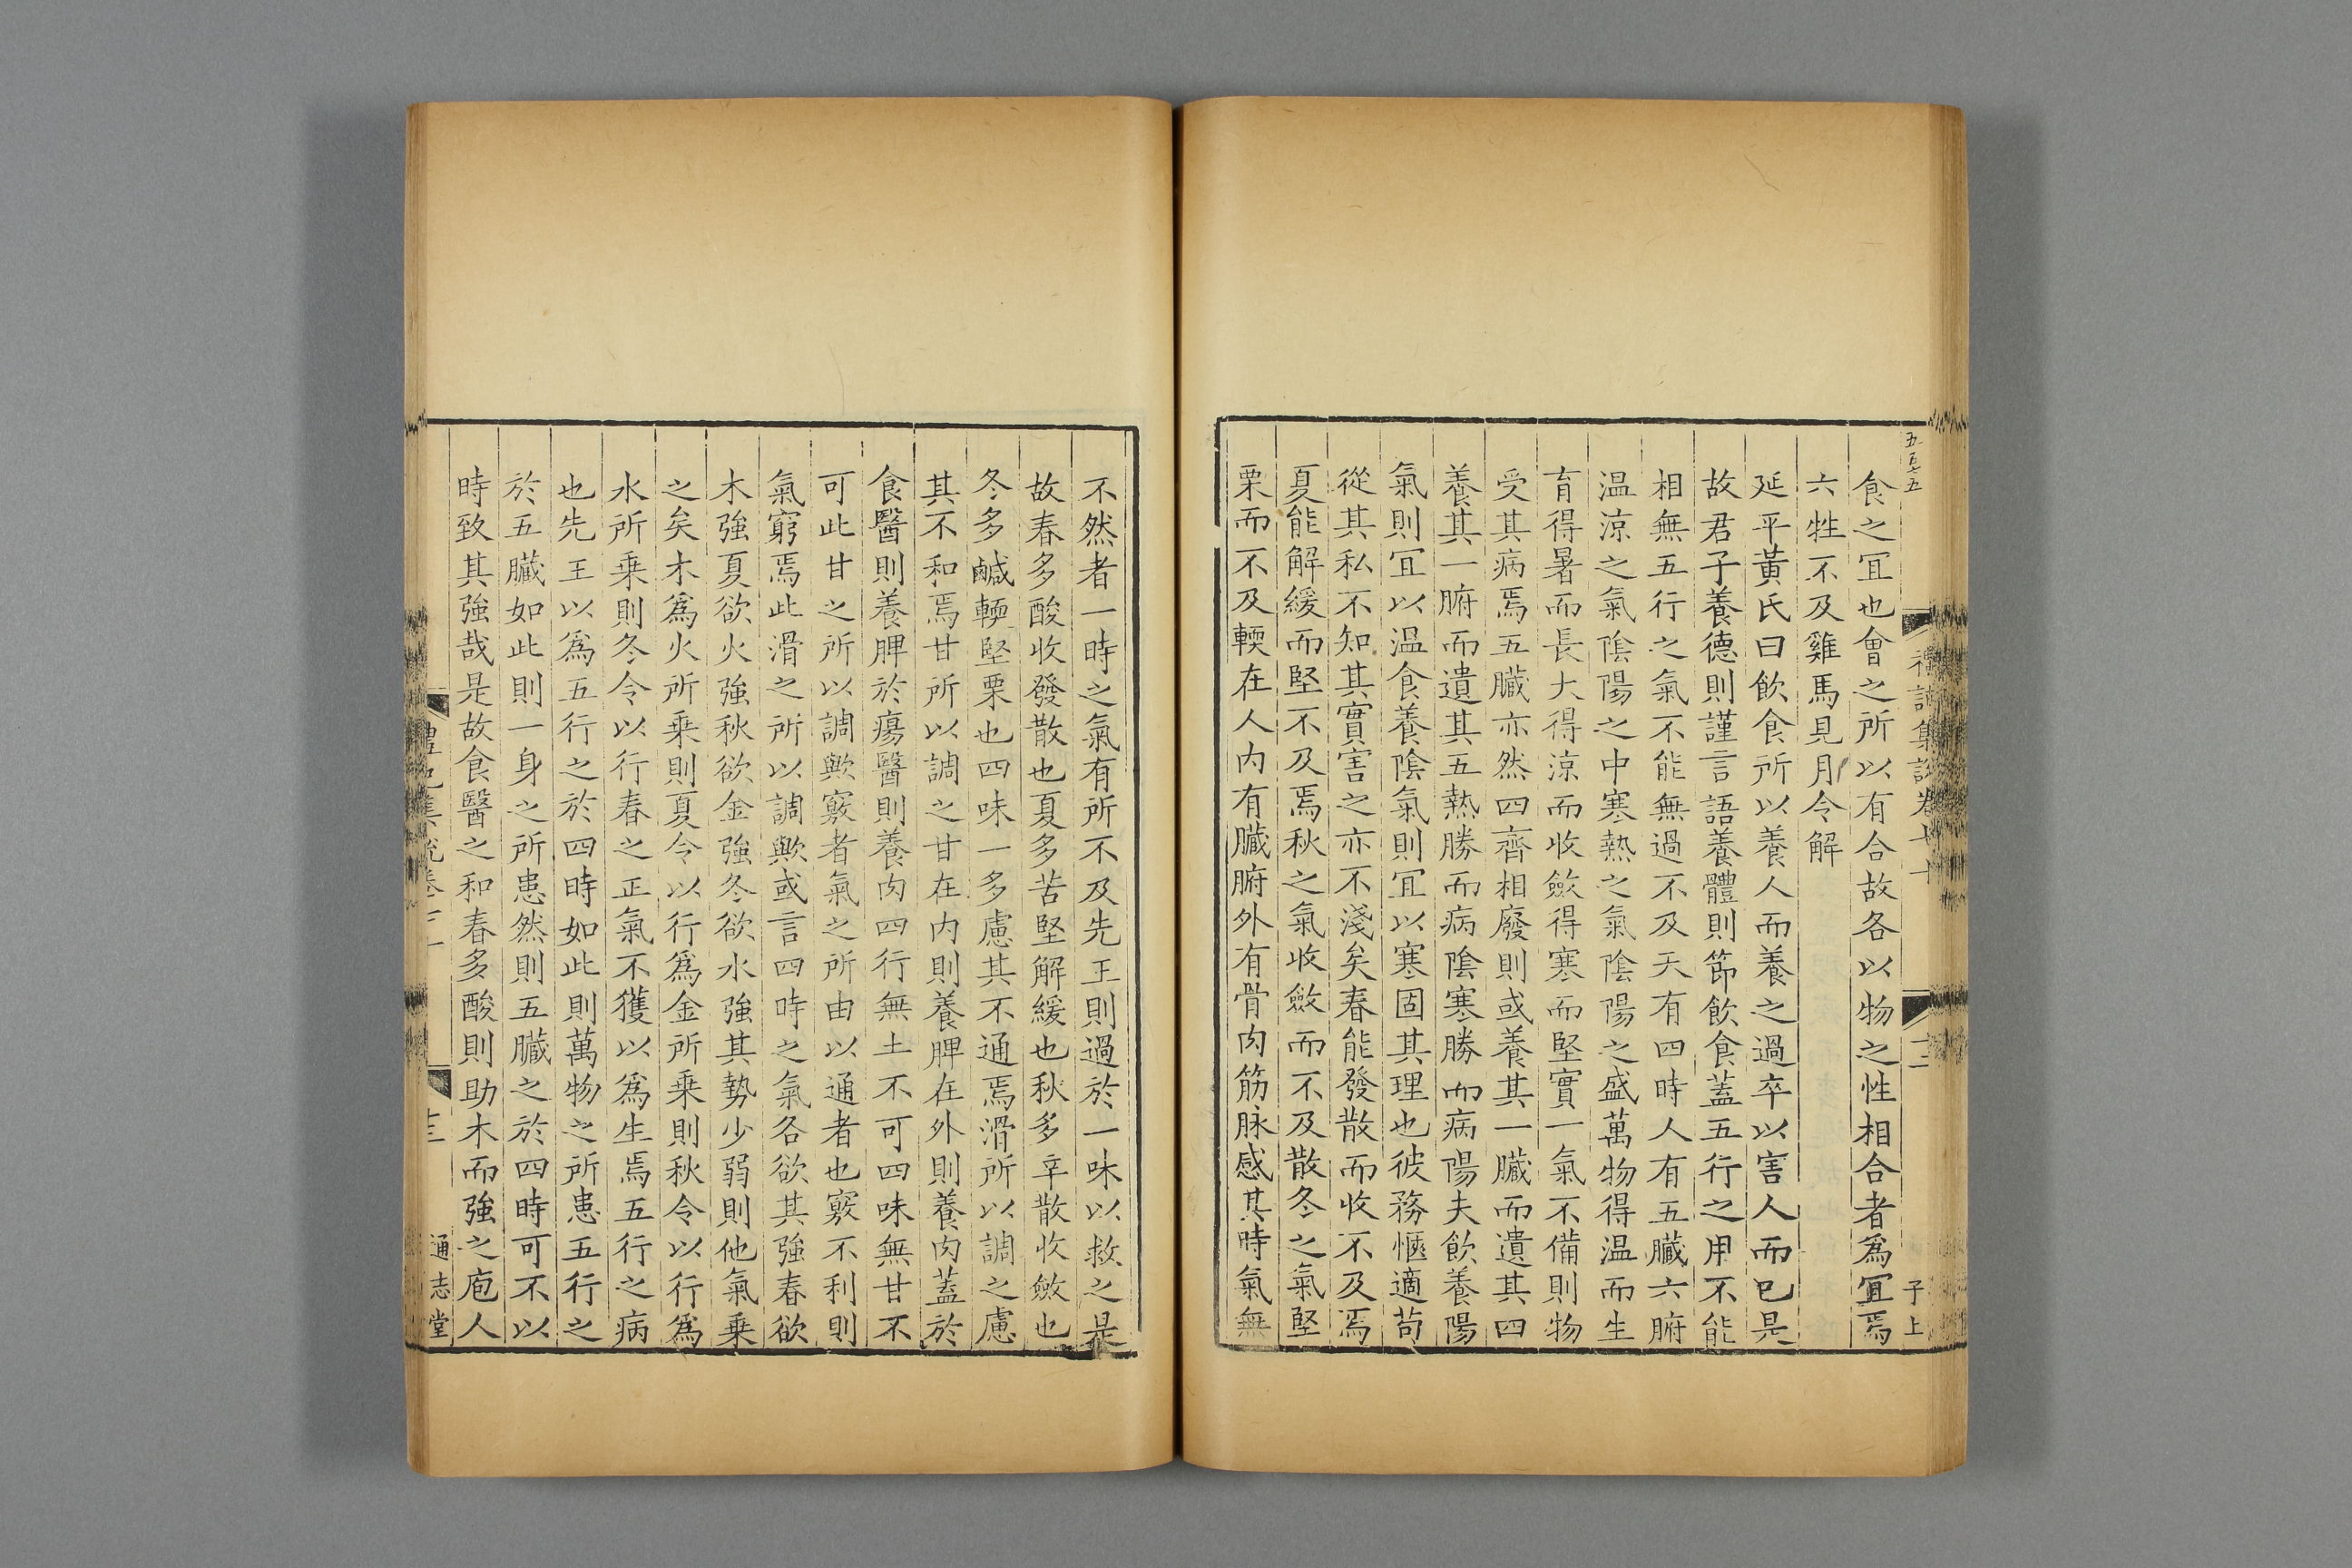 食之冝也會之所以有合故各以物之性相合者爲冝焉
六牲不及雞馬見月令解
延平黃氏曰飲食所以養人而養之過卒以害人而已是
故君子養德則謹言語養體則節飲食蓋五行之用不能
相無五行之氣不能無過不及天有四時人有五臟六腑
温涼之氣陰陽之中寒熱之氣陰陽之盛萬物得温而生
育得暑而長大得涼而收斂得寒而堅實一氣不備則物
受其病焉五臟亦然四齊相廢則或養其一臟而遺其四
養其一腑而遺其五熱勝而病陰寒勝而病陽夫飲養陽
氣則冝以温食養陰氣則冝以寒固其理也彼務愜適苟
從其私不知其實害之亦不淺矣春能發散而收不及焉
夏能解緩而堅不及焉秋之氣收斂而不及散冬之氣堅
栗而不及輭在人内有臟腑外有骨肉筋脉感其時氣無
不然者一時之氣有所不及先王則過於一味以救之是
故春多酸收發散也夏多苦堅解緩也秋多辛散收斂也
冬多鹹輭堅栗也四味一多慮其不通焉滑所以調之慮
其不和焉甘所以調之甘在内則養脾在外則養肉蓋於
食醫則養脾於瘍醫則養肉四行無土不可四味無甘不
可此甘之所以調歟竅者氣之所由以通者也竅不利則
氣窮焉此滑之所以調歟或言四時之氣各欲其強春欲
木強夏欲火強秋欲金強冬欲水強其勢少弱則他氣乗
之矣木爲火所乗則夏令以行爲金所乗則秋令以行爲
水所乗則冬令以行春之正氣不獲以爲生焉五行之病
也先王以爲五行之於四時如此則萬物之所患五行之
於五臟如此則一身之所患然則五臟之於四時可不以
時致其強哉是故食醫之和春多酸則助木而強之庖人
通志堂